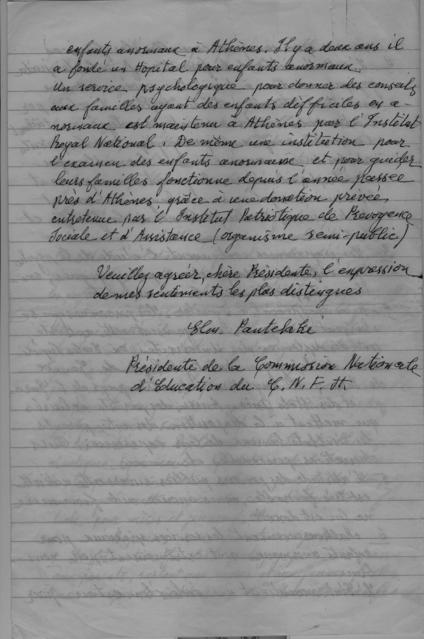 enfants anormaux à Athènes. Il y a deux ans il
a fondé un Hopital pour enfants anormaux.
Un service psychologique pour donner des conseils
aux familles ayant des enfants difficiles ou a-
normaux est maintenu à Athènes par l'Institut
Royal National. De même une institution pour
l'examen des enfants anormaux et pour guider
leurs familles fonctionne depuis l'année passée
près d'Athènes grâce à une donation privée,
entretenue par l'Institut Patriotique de Prévoyance
Sociale et d'Assistance (organisme semi-public)
Veuillez agréer, chère Présidente, l'expression
de mes sentiments les plus distingués
Pantelaki
Présidente de la Commission Nationale
d'Education du C.N.F.H.